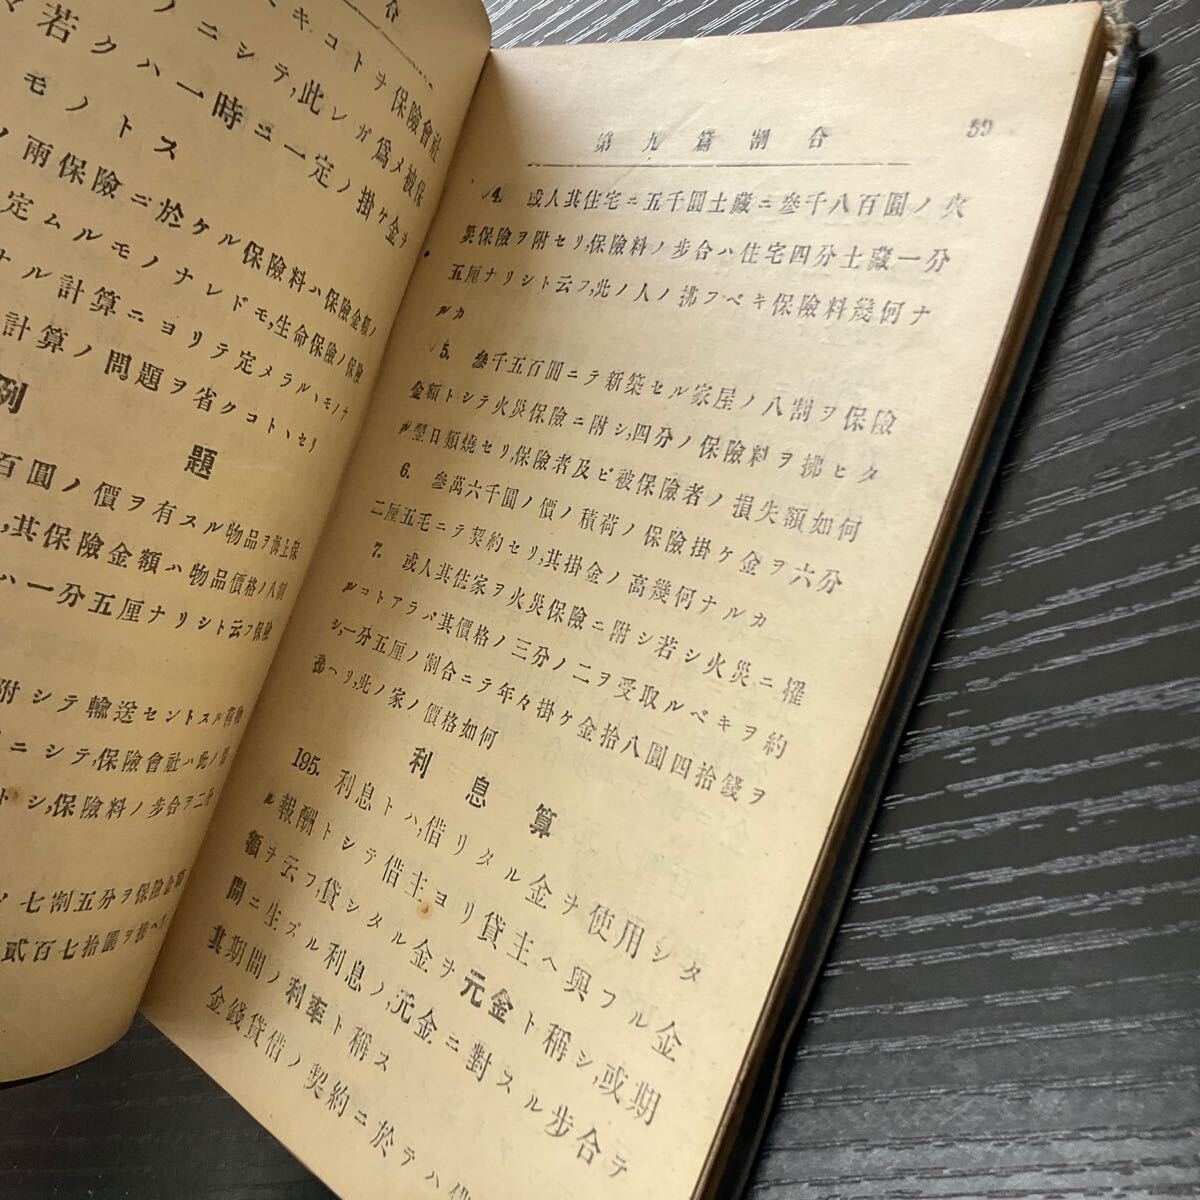 キコトヲ保險會社
ノニシテ,此レガ爲メ被保
若クハ一時ニ一定ノ掛ケ金ヲ
モノトス
ノ兩保險ニ於ケル保險料ハ保險金額ノ
定ムルモノナレドモ,生命保險ノ保險
ナル計算ニヨリテ定メラルヽモノナ
計算ノ問題ヲ省クコトヽセリ
例題
百圓ノ價ヲ有スル物品ヲ海上保
,其保險金額ハ物品價格ノ八割
ハ一分五厘ナリシト云フ保險
附シテ輸送セントスル荷物
ニシテ,保險會社ハ此ノ
トシ,保險料ノ步合ヲ二分
七割五分ヲ保險金額
貳百七拾圓ヲ拂ヘリ
第九篇割合 59
4. 或人其住宅ニ五千圓土藏ニ參千八百圓ノ火
災保險ヲ附セリ,保險料ノ步合ハ住宅四分土藏一分
五厘ナリシト云フ,此ノ人ノ拂フベキ保險料幾何ナ
ルカ
5. 參千五百圓ニテ新築セル家屋ノ八割ヲ保險
金額トシテ火災保險ニ附シ,四分ノ保險料ヲ拂ヒタ
ル翌日類燒セリ,保險者及ビ被保險者ノ損失額如何
6. 參萬六千圓ノ價ノ積荷ノ保險掛ケ金ヲ六分
二厘五毛ニテ契約セリ,其掛金ノ高幾何ナルカ
7. 或人其住家ヲ火災保險ニ附シ若シ火災ニ罹
ルコトアラバ其價格ノ三分ノ二ヲ受取ルベキヲ約
シ,一分五厘ノ割合ニテ年々掛ケ金拾八圓四拾錢ヲ
拂ヘリ,此ノ家ノ價格如何
利息算
195. 利息トハ,借リタル金ヲ使用シタ
ル報酬トシテ借主ヨリ貸主ヘ與フル金
額ヲ云フ,貸シタル金ヲ元金ト稱シ,或期
間ニ生ズル利息ノ,元金ニ對スル步合ヲ
其期間ノ利率ト稱ス
金錢貸借ノ契約ニ於テハ